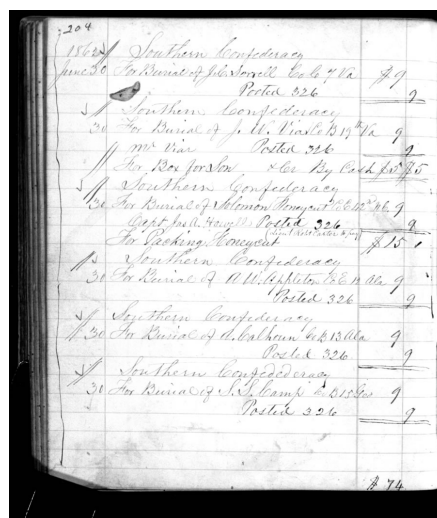 204
1862 Southern Confederacy
June 30 For Burial of J. C. Sorrell Co C 7 Va $9
Posted 326 9
Southern Confederacy
30 For Burial of J. W. Via Co B 19th Va 9
Mr Via Posted 326 9
For Box for Son & Cr By Cash $5 $5
Southern Confederacy
30 For Burial of Solomon Honeycut Co 9
Capt Jas A. Posted 326 9
For Packing Honeycut $15
Southern Confederacy
30 For Burial of A W. Appleton Co E 12 Ala 9
Posted 326 9
Southern Confederacy
30 For Burial of A. Calhoun Co B 13 Ala 9
Posted 326 9
Southern Confedederacy
30 For Burial of S. S. Camp Co B 15 Geo 9
Posted 326 9
$74